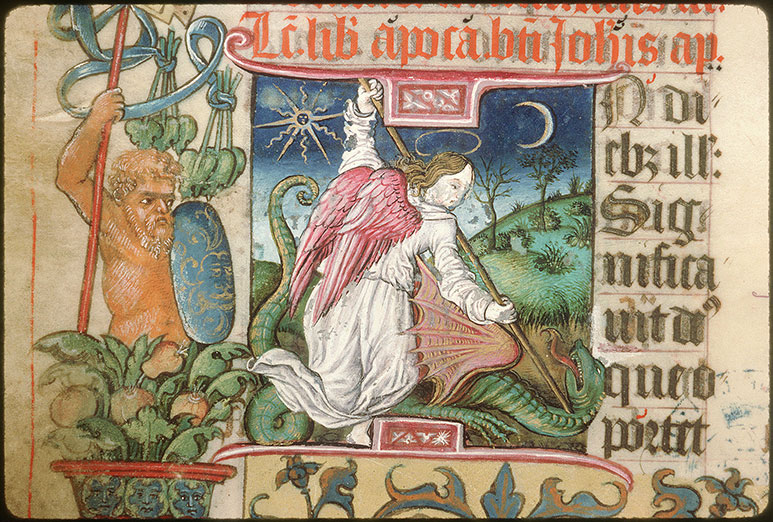 Lc̄. lib̄. apoca. btī. Joh̄is ap.
N di
ebz ill:
Sig
nifica
uit de⁹
que o
portet